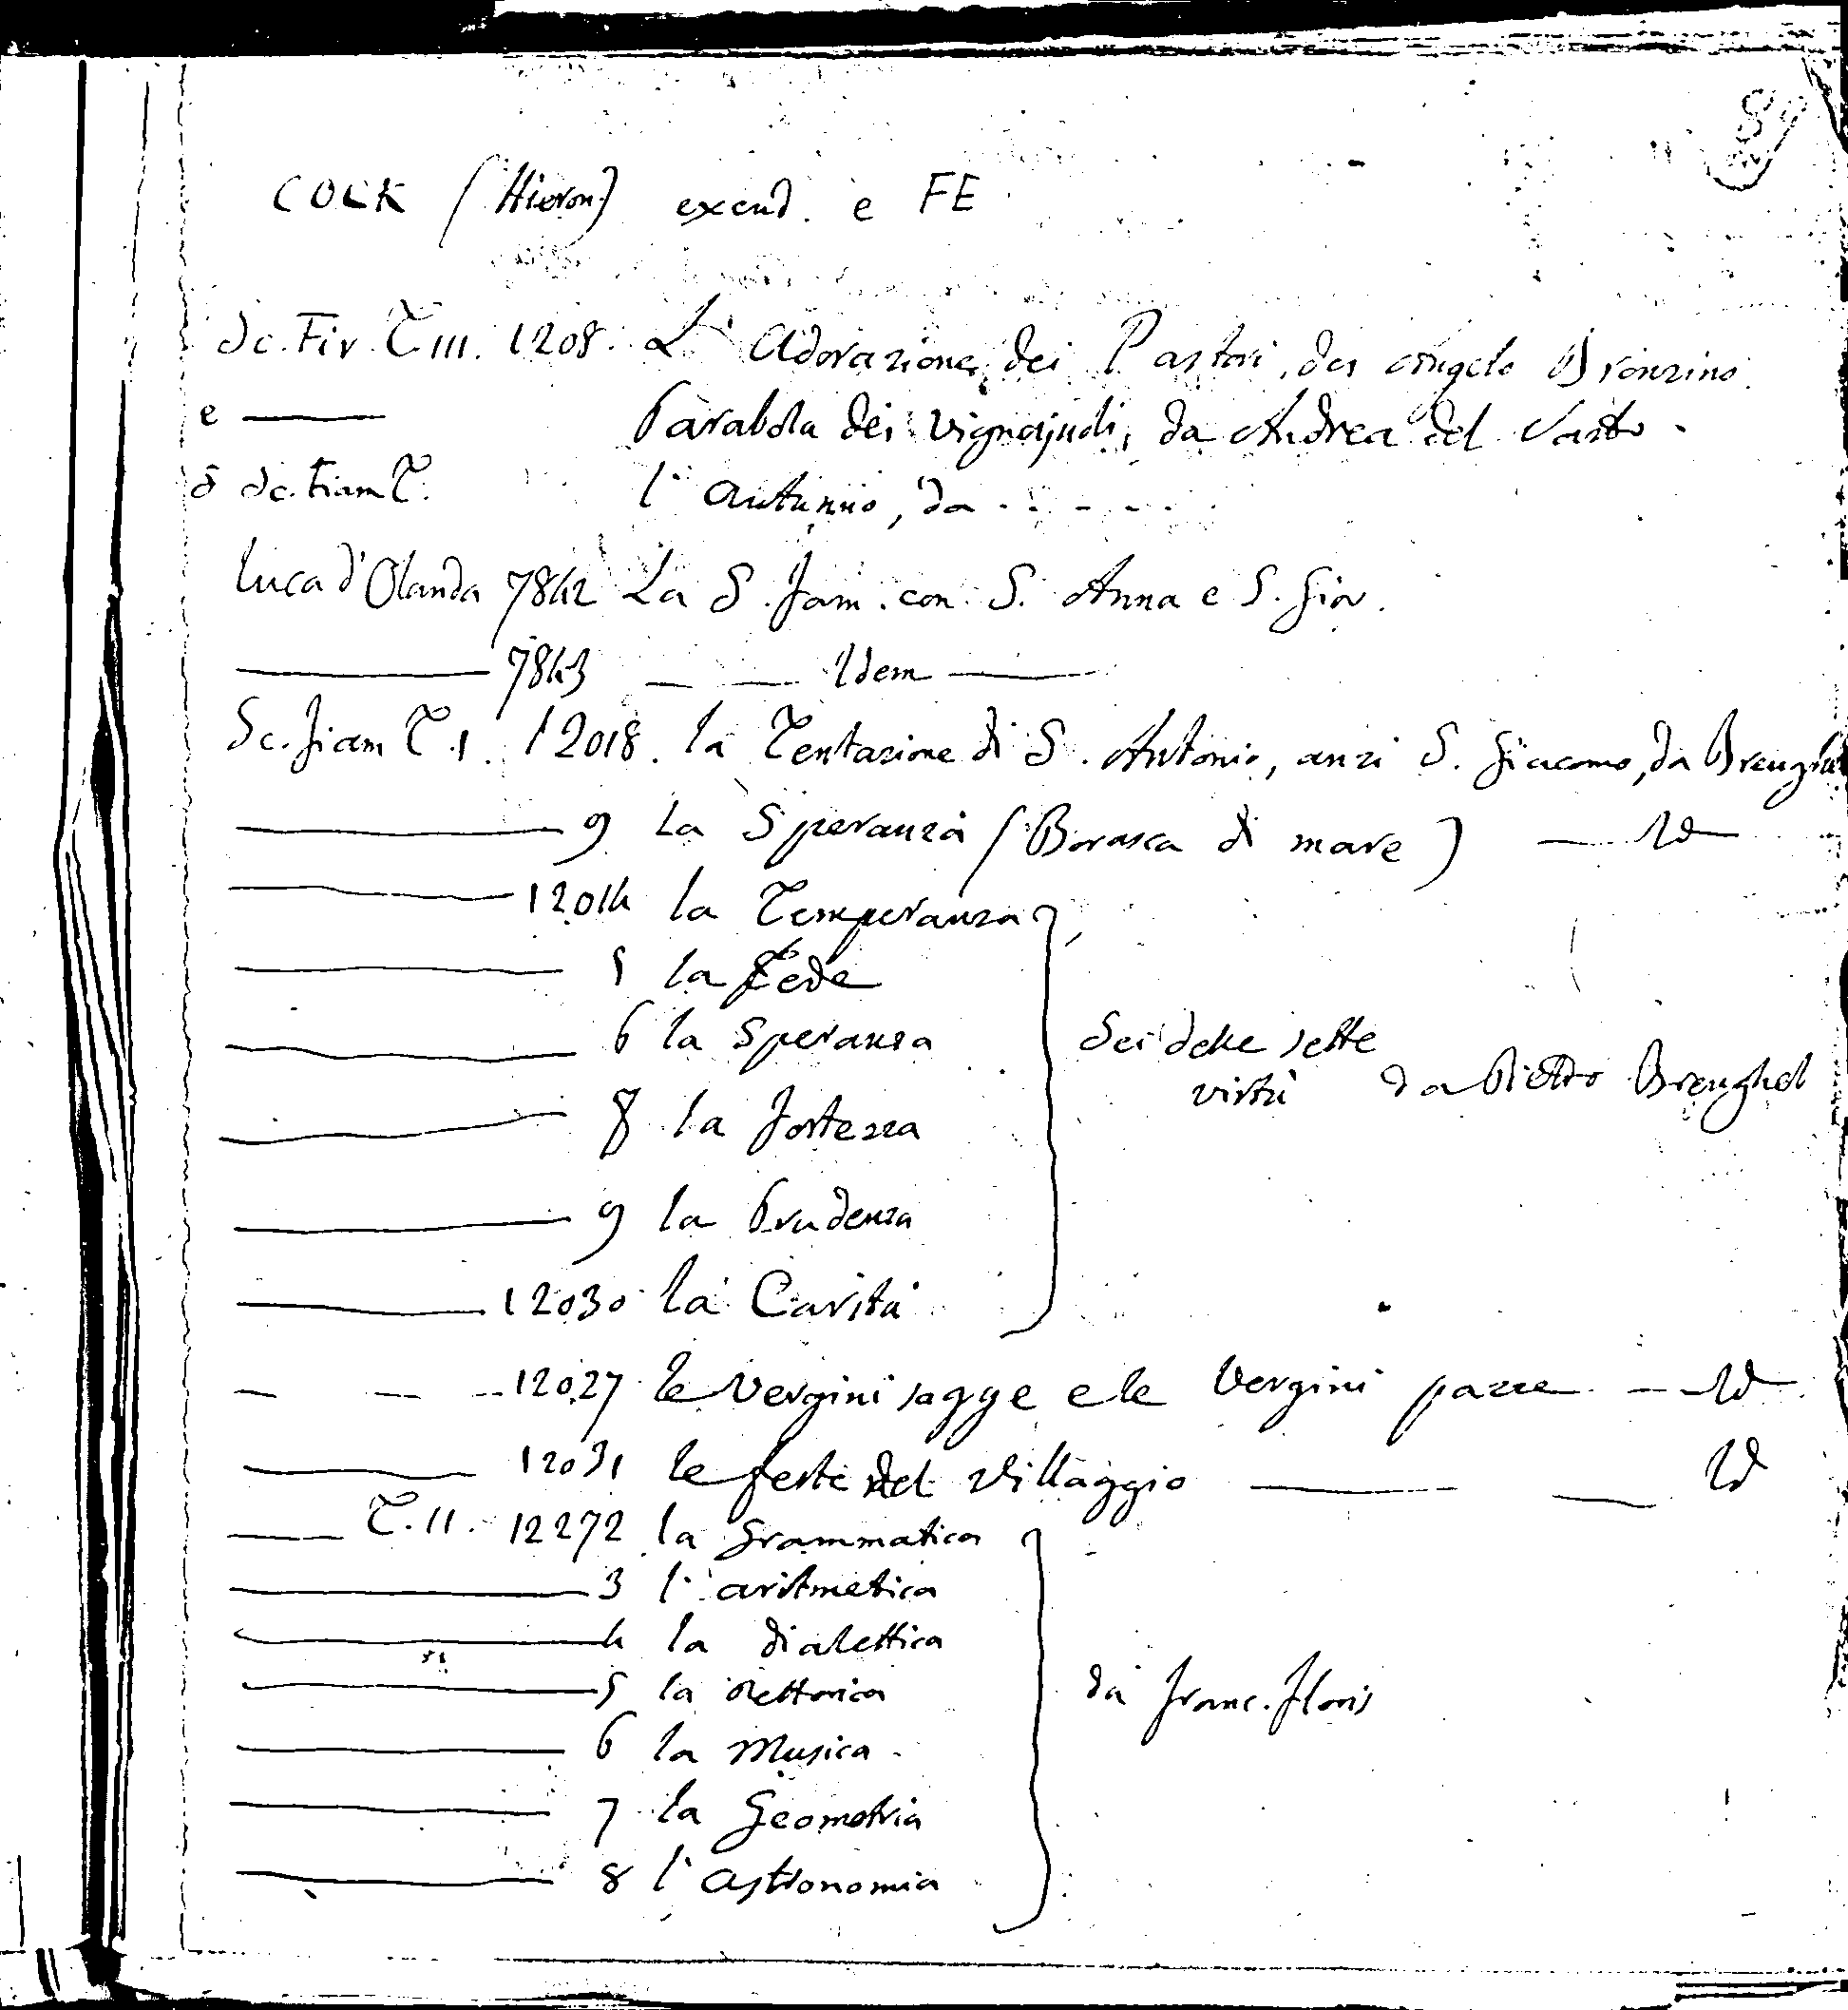 89
COCK (Hieron.) excud. e FE
Sc. Fior. T. III. 1208. L'Adorazione dei Pastori, da Angelo Bronzino.
e ——— Parabola dei Vignajuoli, da Andrea del Sarto.
Sc. Fiam T. l'Autunno, da . . - - -
Luca d'Olanda 7842 La S. Fam. con S. Anna e S. Giov.
——— 7843 — — Idem ———
Sc. fiam T. I. 12018. la Tentazione di S. Antonio, anzi S. Giacomo, da Breughel
——— 9 La Speranza (Borasca di mare) — Id —
——— 12014 la Temperanza
——— 5 la Fede
——— 6 la Speranza
Sei delle sette virtù da Pietro Breughel
——— 8 la Fortezza
——— 9 la Prudenza
——— 12030 la Carità
— — — 12027 le Vergini sagge e le Vergini pazze — Id —
——— 12031 le feste del Villaggio ——— — Id
—— T. II. 12272 la Grammatica
——— 3 l'aritmetica
——— 4 la dialettica
——— 5 la Rettorica da Franc. Floris
——— 6 la Musica
——— 7 la Geometria
——— 8 l'Astronomia